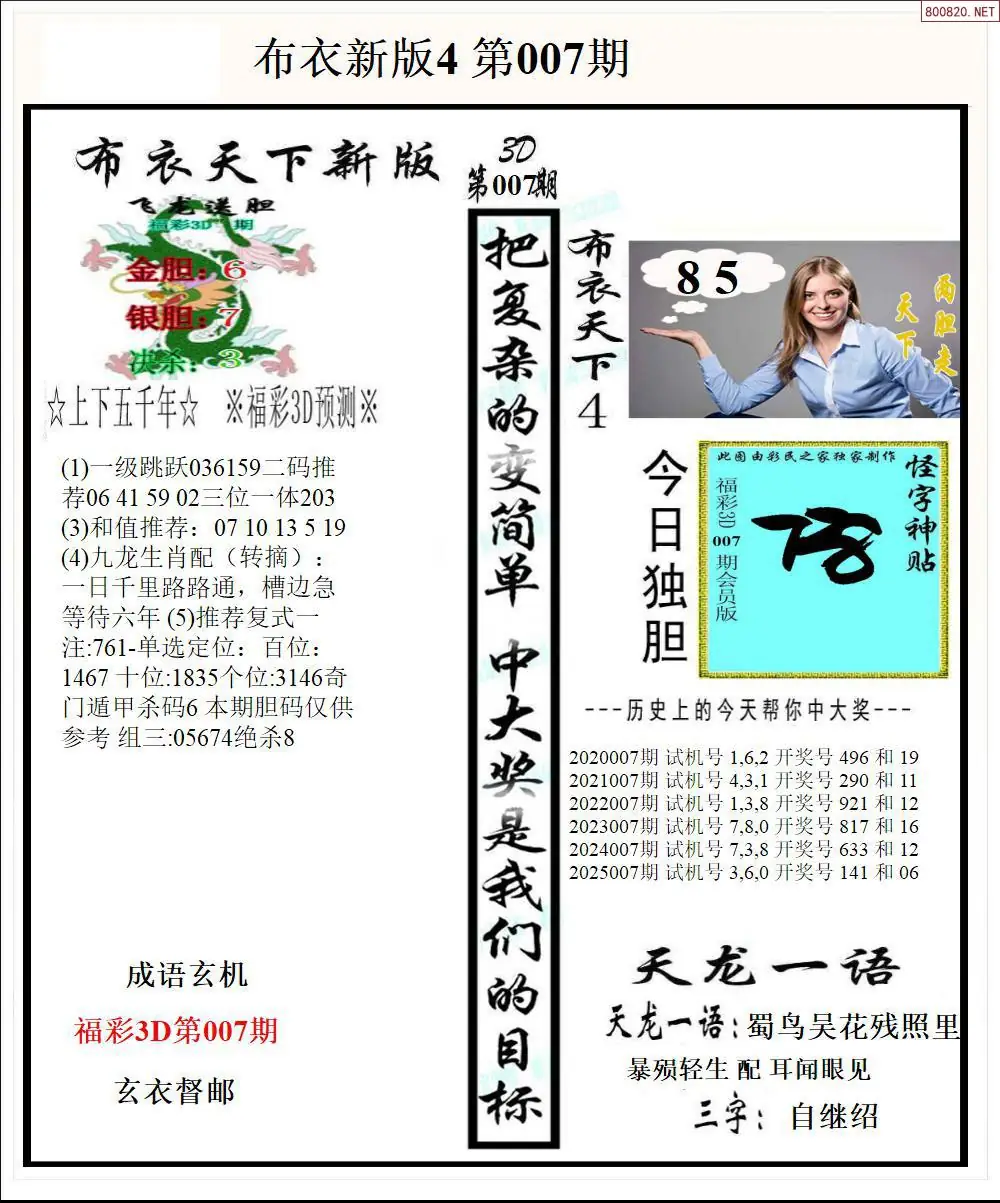 800820.NET
布衣新版4 第007期
布衣天下新版
飞龙送胆
福彩3D 期
金胆：6
银胆：7
决杀：3
☆上下五千年☆ ※福彩3D预测※
(1)一级跳跃036159二码推
荐06 41 59 02三位一体203
(3)和值推荐：07 10 13 5 19
(4)九龙生肖配（转摘）：
一日千里路路通，槽边急
等待六年 (5)推荐复式一
注:761-单选定位：百位：
1467 十位:1835个位:3146奇
门遁甲杀码6 本期胆码仅供
参考 组三:05674绝杀8
成语玄机
福彩3D第007期
玄衣督邮
3D
第007期
把复杂的变简单 中大奖是我们的目标
布衣天下4
8 5
两胆走
天下
今日独胆
此图由彩民之家独家制作
怪字神贴
福彩3D 007 期会员版
---历史上的今天帮你中大奖---
2020007期 试机号 1,6,2 开奖号 496 和 19
2021007期 试机号 4,3,1 开奖号 290 和 11
2022007期 试机号 1,3,8 开奖号 921 和 12
2023007期 试机号 7,8,0 开奖号 817 和 16
2024007期 试机号 7,3,8 开奖号 633 和 12
2025007期 试机号 3,6,0 开奖号 141 和 06
天龙一语
天龙一语:蜀鸟吴花残照里
暴殒轻生 配 耳闻眼见
三字：自继绍